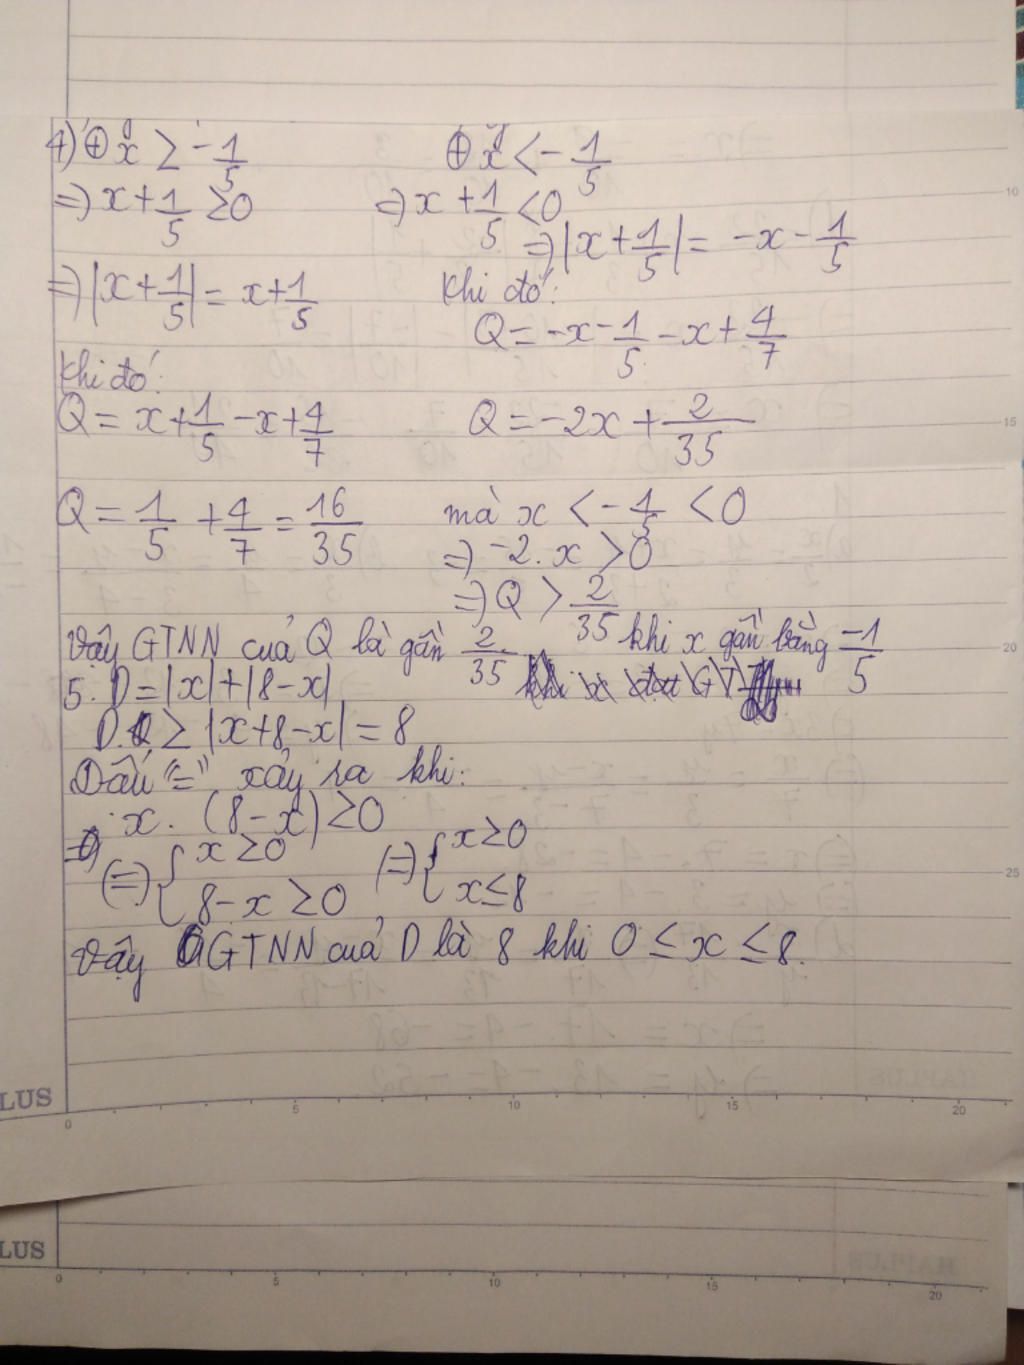 4) ⊕ x ≥ -1/5
=> x + 1/5 ≥ 0
=> |x + 1/5| = x + 1/5
Khi đó:
Q = x + 1/5 - x + 4/7
Q = 1/5 + 4/7 = 16/35
⊕ x < -1/5
=> x + 1/5 < 0
=> |x + 1/5| = -x - 1/5
Khi đó:
Q = -x - 1/5 - x + 4/7
Q = -2x + 2/35
mà x < -1/5 < 0
=> -2. x > 0
=> Q > 2/35
Vậy GTNN của Q là gần 2/35 khi x gần bằng -1/5
5. D = |x| + |8 - x|
D ≥ |x + 8 - x| = 8
Dấu "=" xảy ra khi:
x. (8 - x) ≥ 0
(=) { x ≥ 0 (=) { x ≥ 0
8 - x ≥ 0 x ≤ 8
Vậy GTNN của D là 8 khi 0 ≤ x ≤ 8.
LUS
0 5 10 15 20
LUS
0 5 10 15 20
10
15
20
25